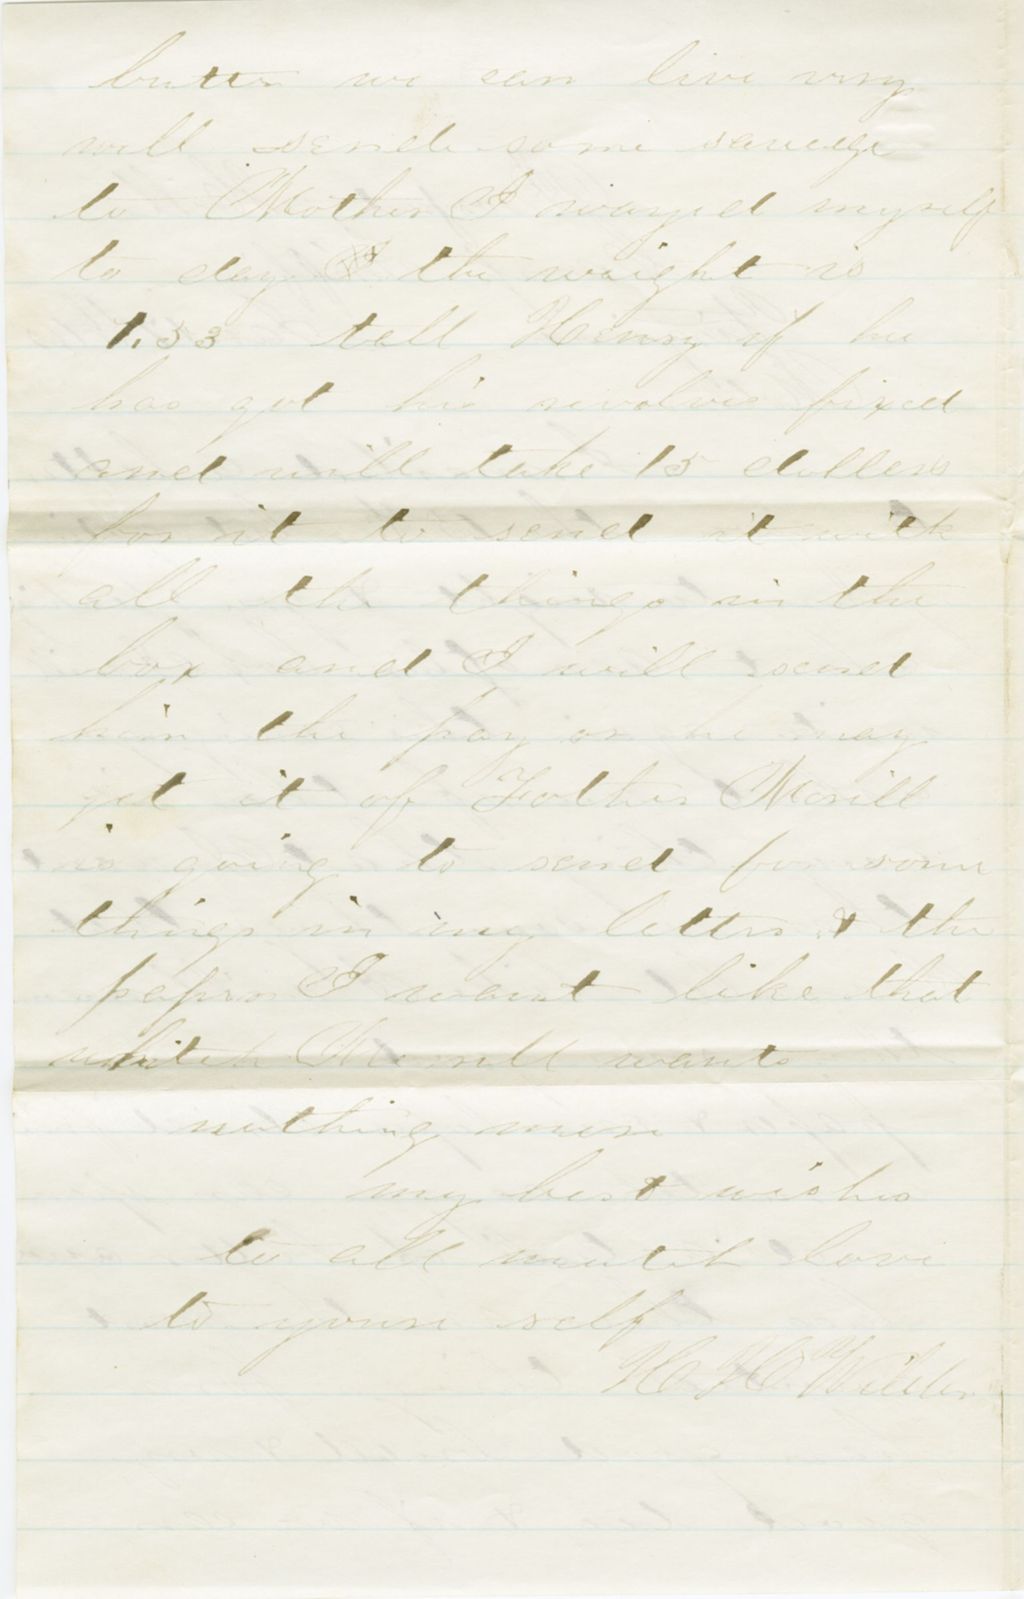 butter we can live very
well send some sausage
to Mother I wayed myself
to day the weight is
1.33 tell Henry if he
has got his revolver fixed
and will take 15 dollers
for it to send it with
all the things in the
box and I will send
him the pay or he may
get it of Father Morill
is going to send for some
things in my letter & the
papers I want like that
whitch Morill wants
nothing more
my best wishes
to all mutch love
to youre self
H H Wilder